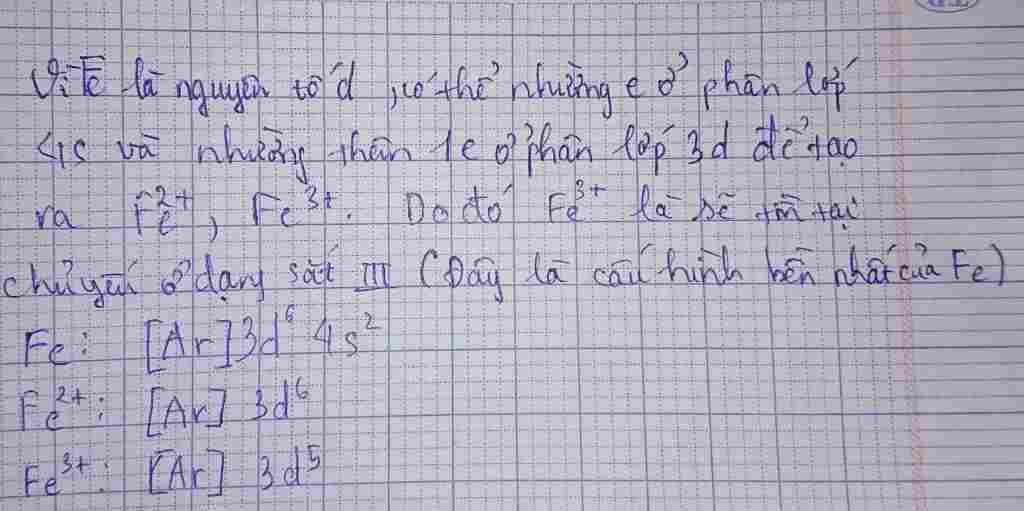 Vì Fe là nguyên tố d, có thể nhường e ở phân lớp
4s và nhường thêm 1e ở phân lớp 3d để tạo
ra Fe²⁺, Fe³⁺. Do đó Fe³⁺ là sẽ tồn tại
chủ yếu ở dạng sắt III (Đây là cấu hình bền nhất của Fe)
Fe: [Ar] 3d⁶ 4s²
Fe²⁺: [Ar] 3d⁶
Fe³⁺: [Ar] 3d⁵